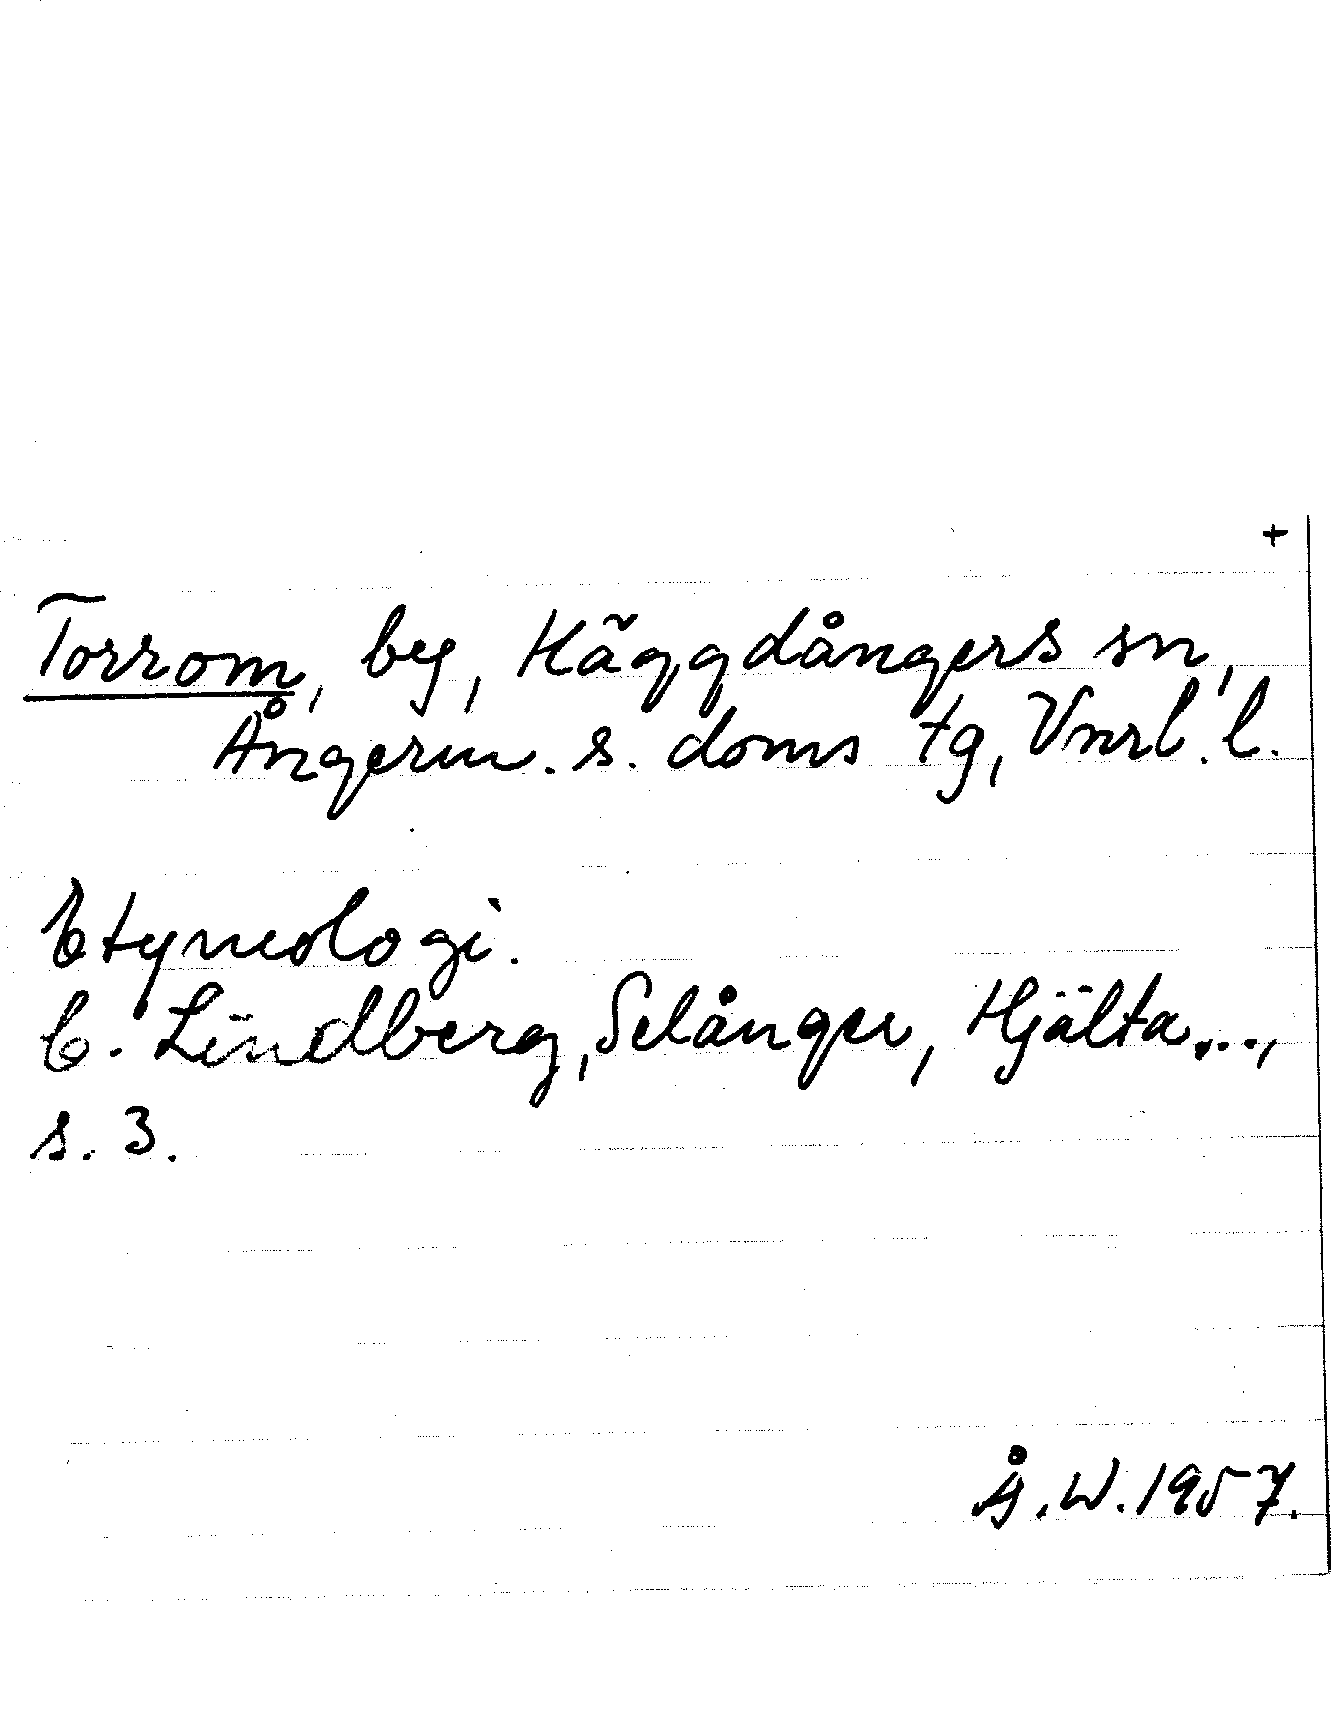 +
Torrom, by, Häggdångers sn,
Ångerm. s. doms tg, Vnrl. l.
Etymologi.
C. Lindberg, Selånger, Hjälta...,
s. 3.
Å.W. 1957.